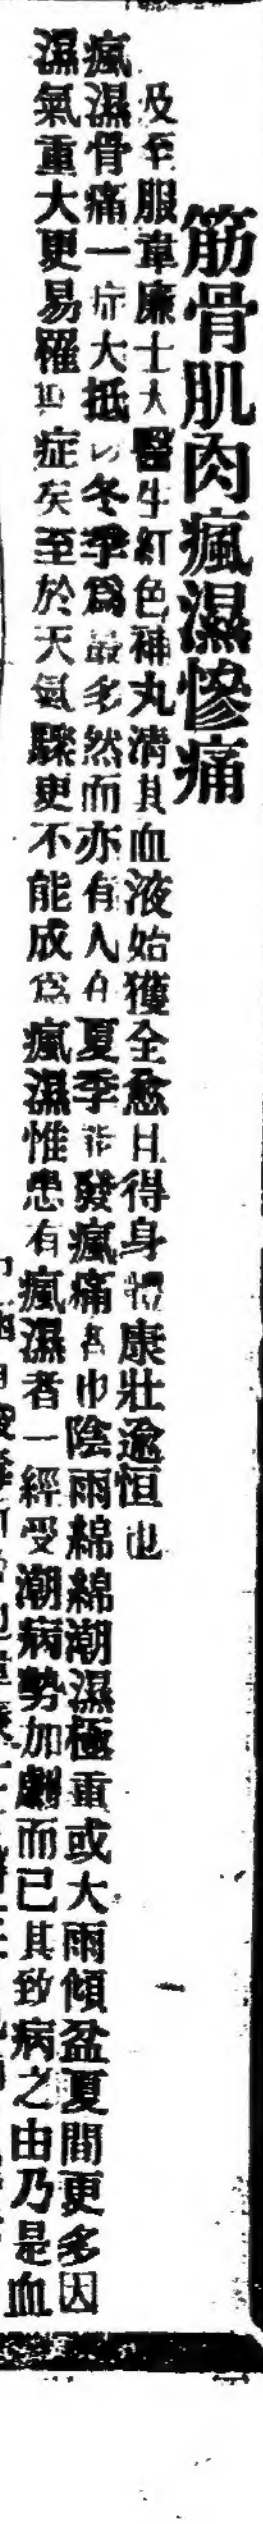 筋骨肌肉瘋濕慘痛
及至服韋廉士大醫生紅色補丸淸其血液始獲全愈且得身體康壯逾恒也
瘋濕骨痛一症大抵以冬季爲最多然而亦有人在夏季能發瘋痛者巾陰雨綿綿潮濕極重或大雨傾盆夏間更多因
濕氣重大更易罹此症矣至於天氣驟更不能成爲瘋濕惟患有瘋濕者一經受潮病勢加劇而已其致病之由乃是血